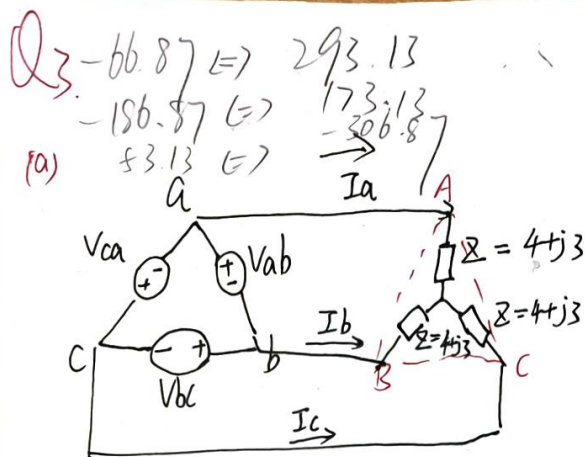 Q3. -66.87 <=> 293.13
-186.87 <=> 173.13
(a) 53.13 <=> -306.87
Ia
a A
Vca Vab Z = 4+j3
Z = 4+j3
Z = 4+j3
Ib
C b B C
Vbc
Ic